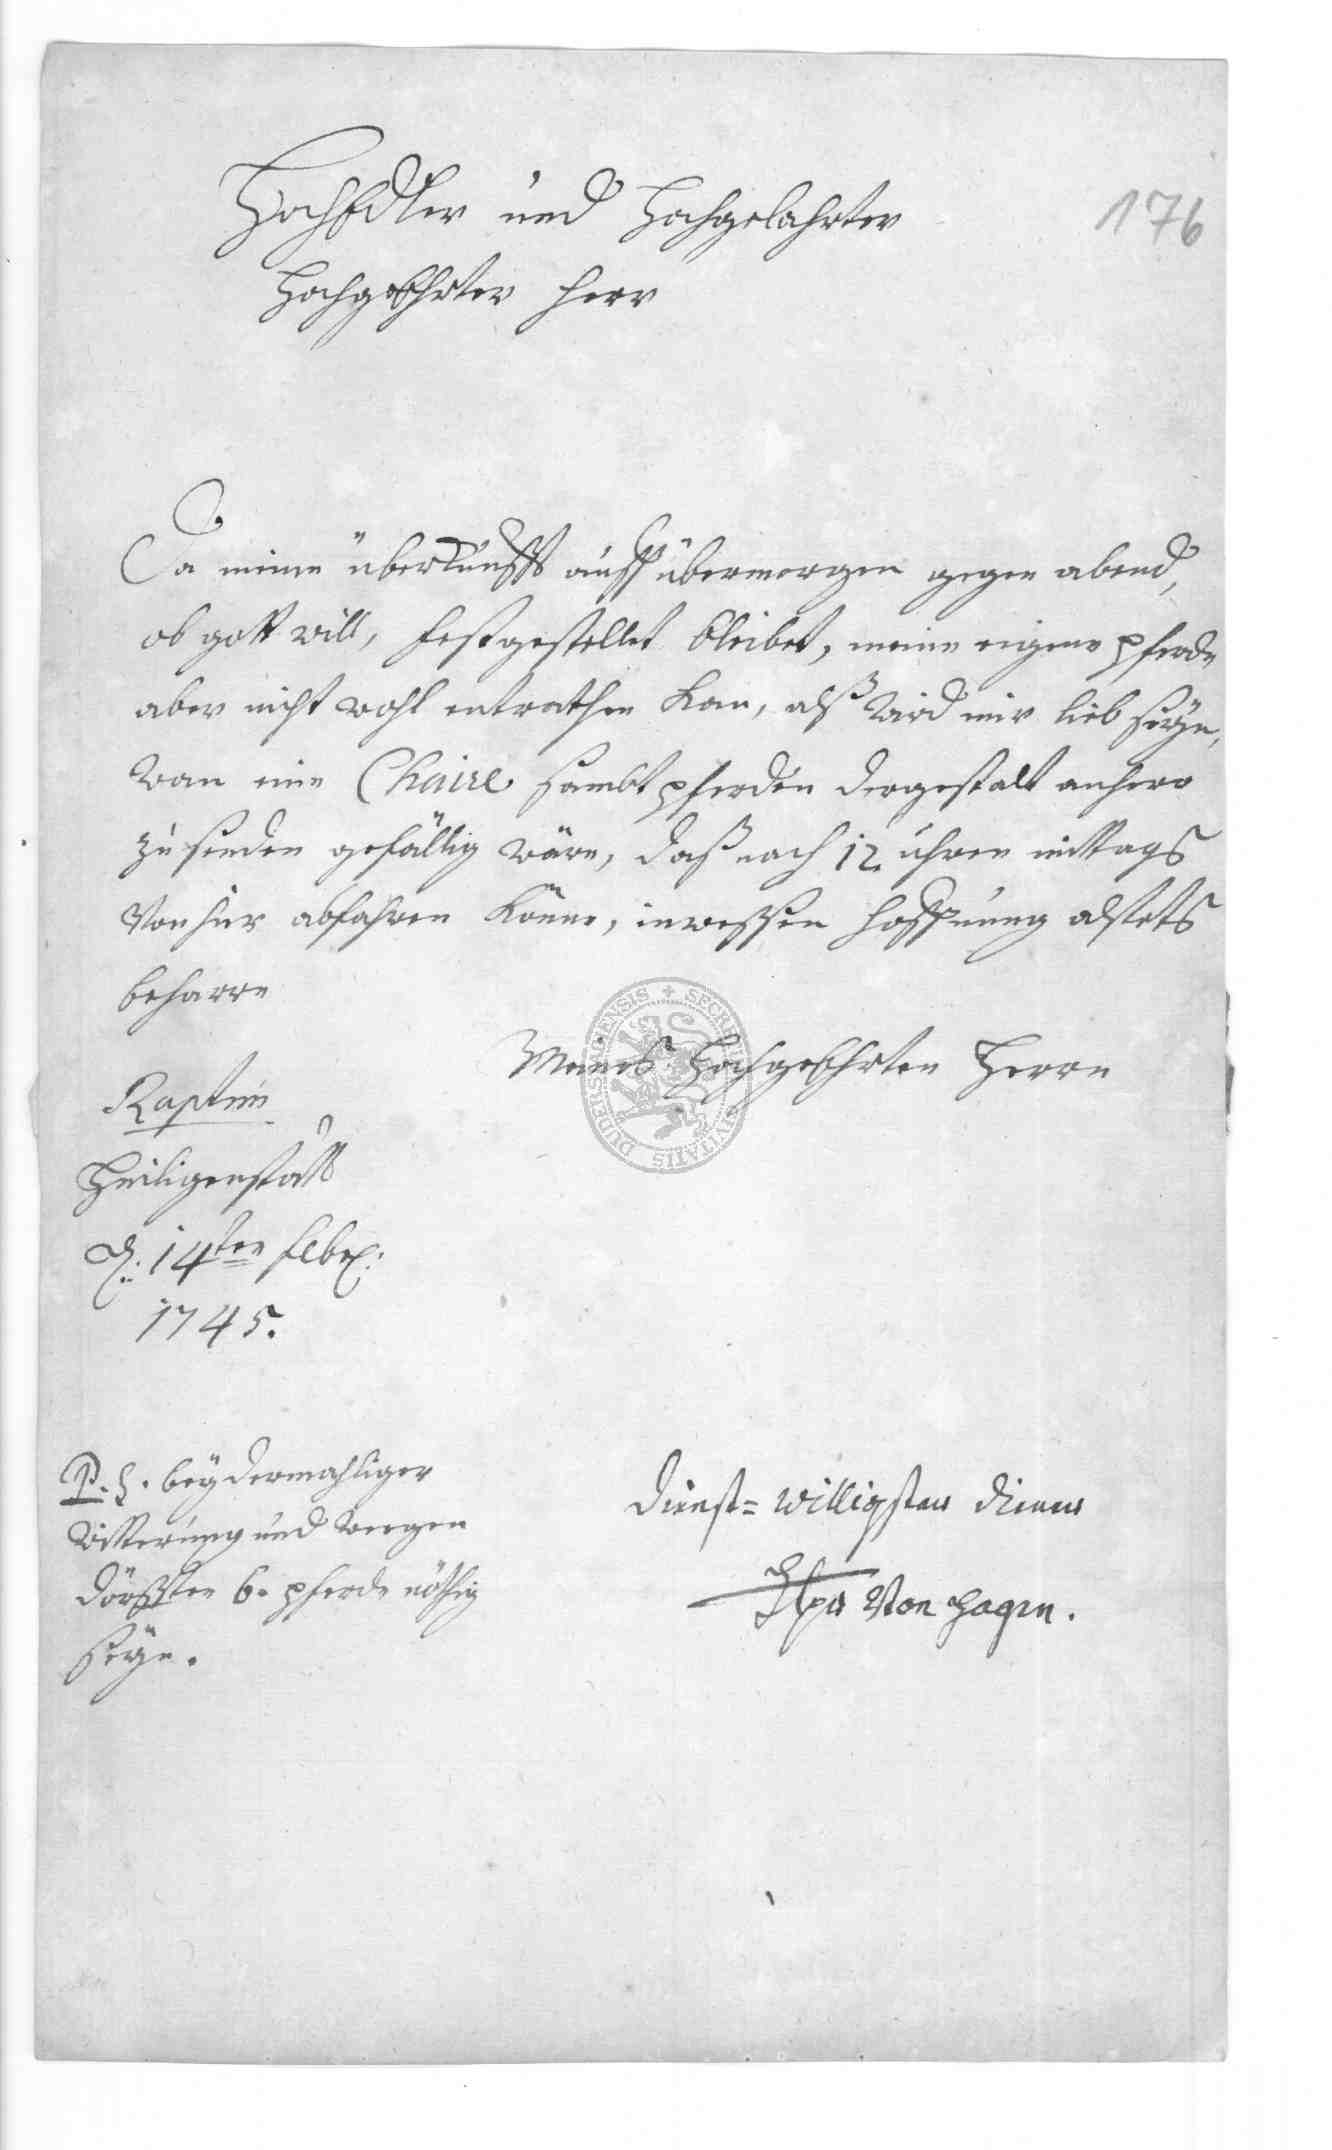 HochEdler und Hochgelahrter
176
Hochgeehrter Herr
Da meine überkunfft auff übermorgen gegen abend,
ob gott will, festgestellet bleibet, meine eigene pferde
aber nicht wohl entrathen kan, alß wird mir lieb seyn,
wan eine Chaise sambt pferden dergestalt anhero
zu senden gefällig wäre, daß nach 12 uhren mittags
von hier abfahren könne, in welcher hoffnung alstets
beharre
Meines Hochgeehrten Herrn
Raptim
Heiligenstatt
d. 14ten
1745.
P.S. bey dermahliger
witterung und weegen
dörfften 6. pferde nöthig
seyn.
dienst= willigster diener
von Hagen.
SECRETUM CIVITATIS DUDERSTADIENSIS